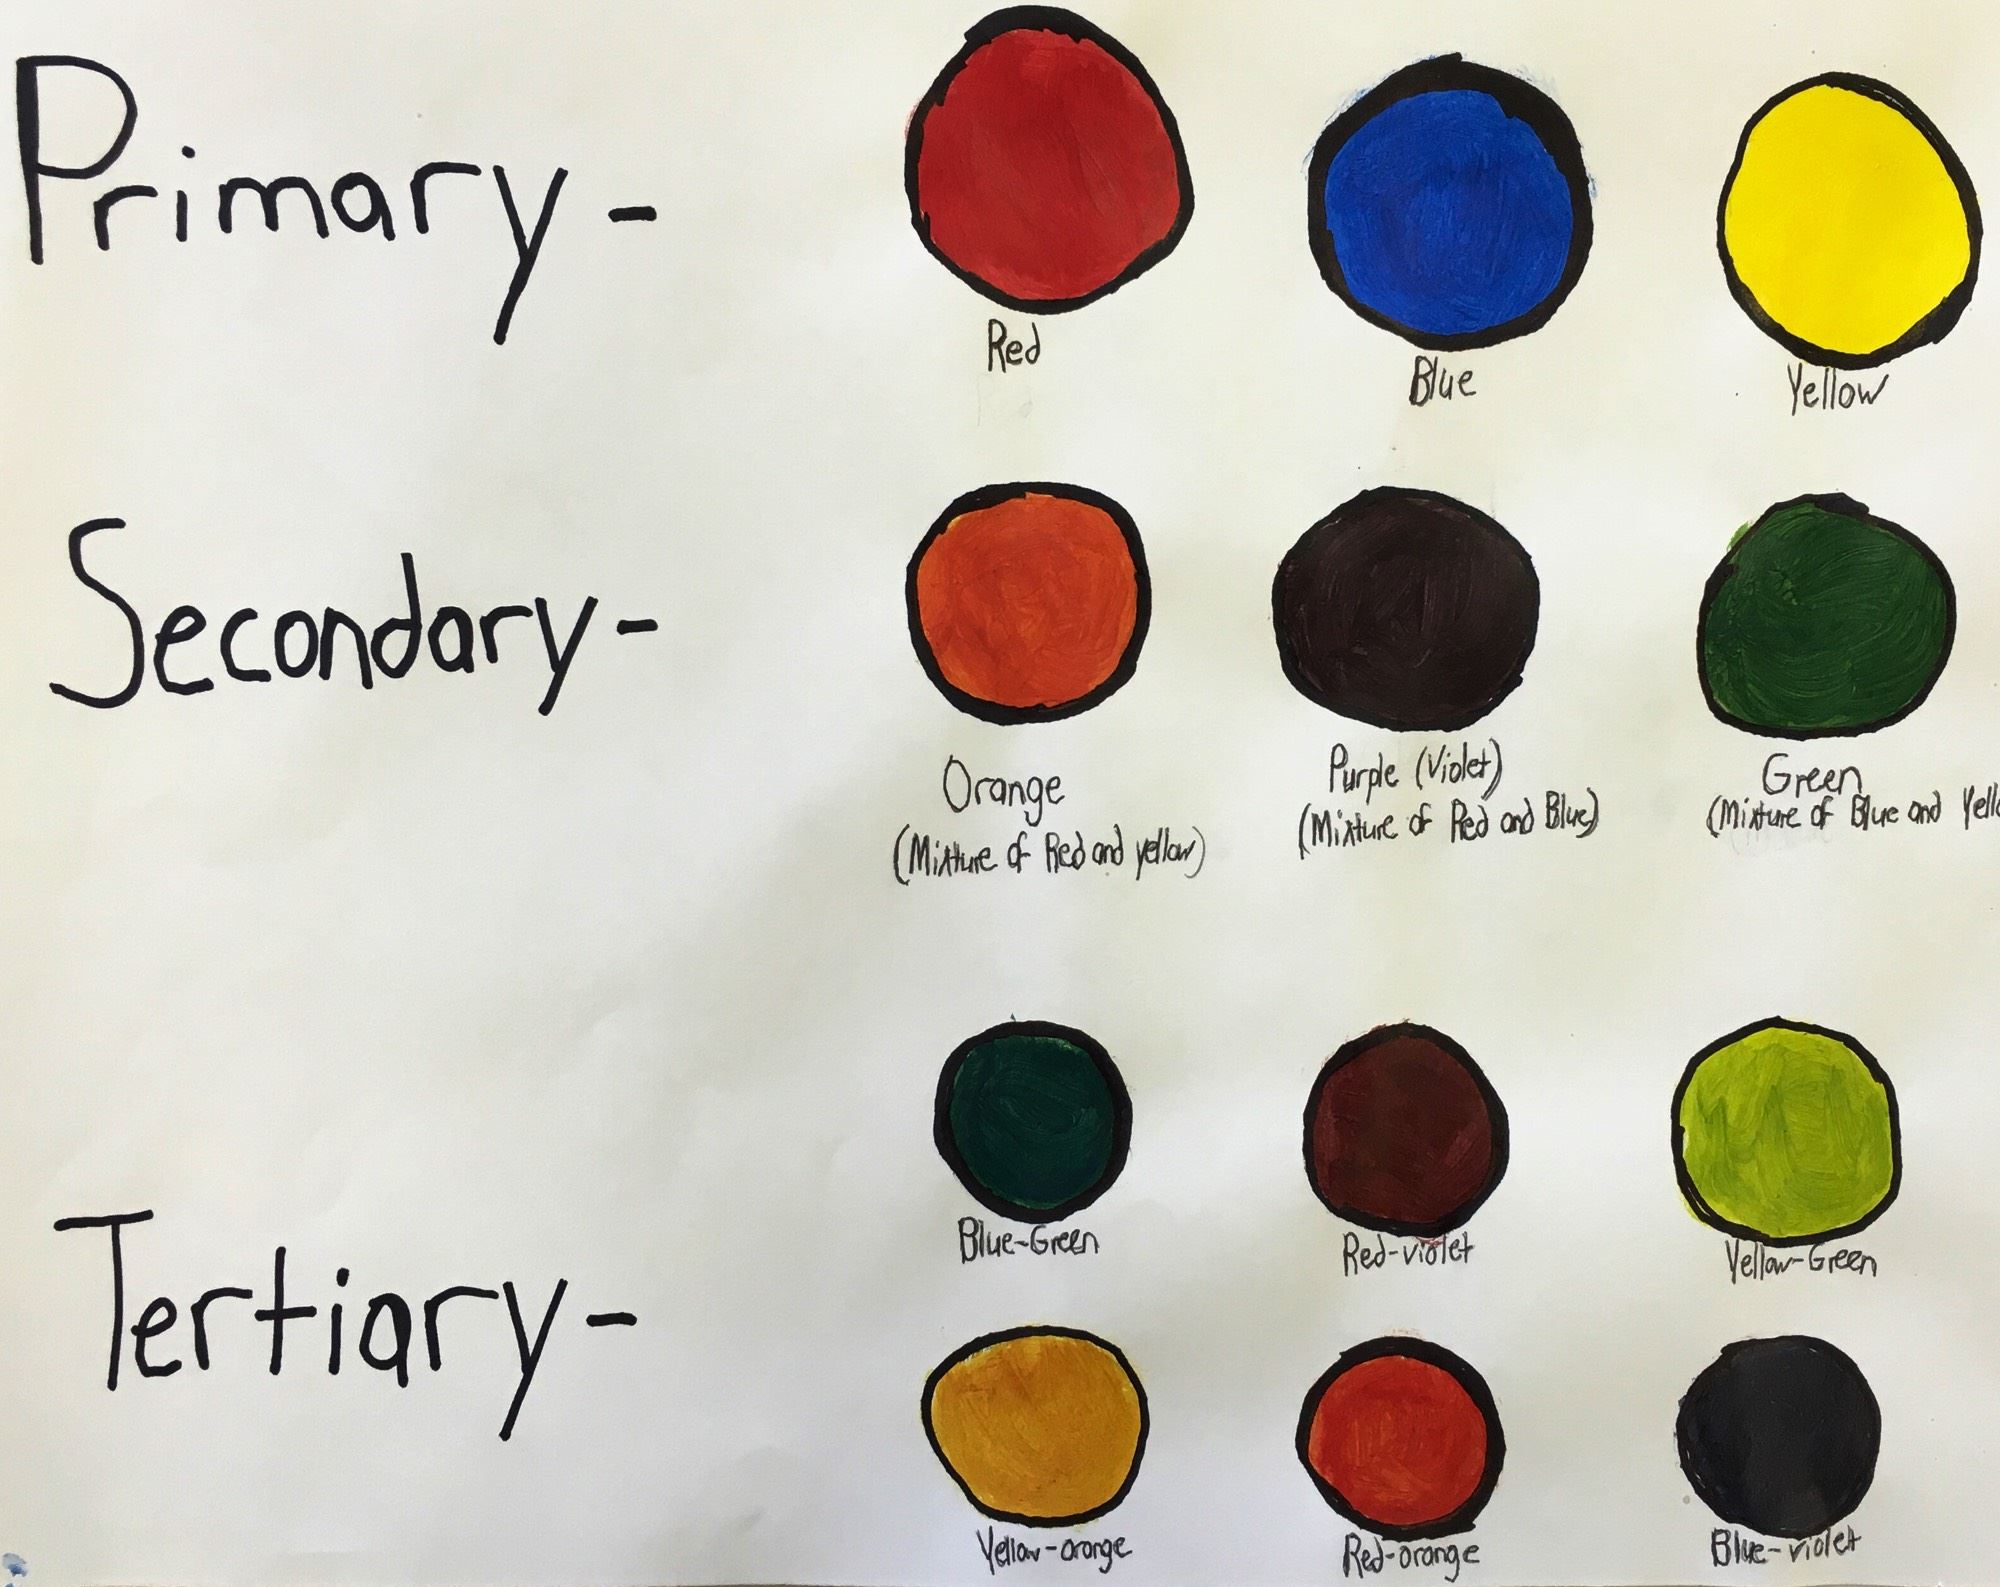 Primary -
Red
Blue
Yellow
Secondary -
Orange
(Mixture of Red and yellow)
Purple (Violet)
(Mixture of Red and Blue)
Green
(Mixture of Blue and Yello
Tertiary -
Blue-Green
Red-violet
Yellow-Green
Yellow-orange
Red-orange
Blue-violet